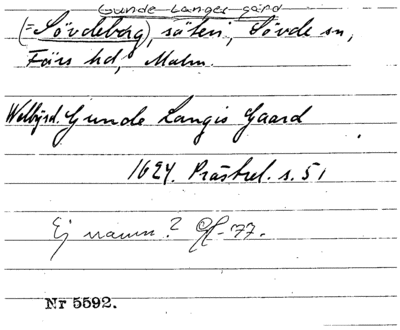 Gunde Langes gård
(= Sövdeborg), säteri, Sövde sn,
Färs hd, Malm.
Welbÿrd. Gunde Langis Gaard
1624. Prästrel. s. 51
Ej namn? -77.
Nr 5592.